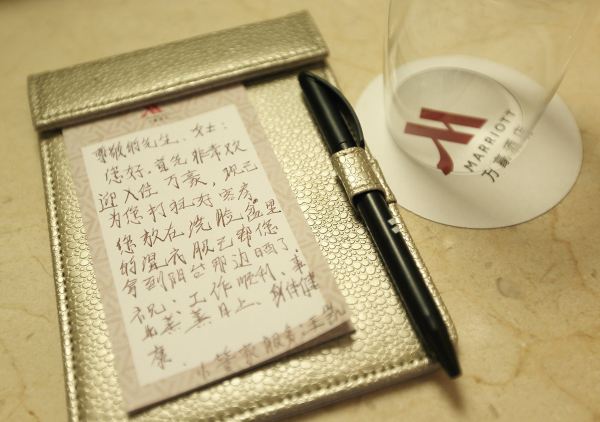 尊敬的先生、女士：
您好，首先非常欢
迎入住万豪，现已
为您打扫好客房
您放在洗脸盆里
的湿衣服已帮您
拿到阳台那边晒了.
祝：工作顺利、事
业蒸蒸日上、身体健
康.
小管家服务:王
MARRIOTT
万豪酒店